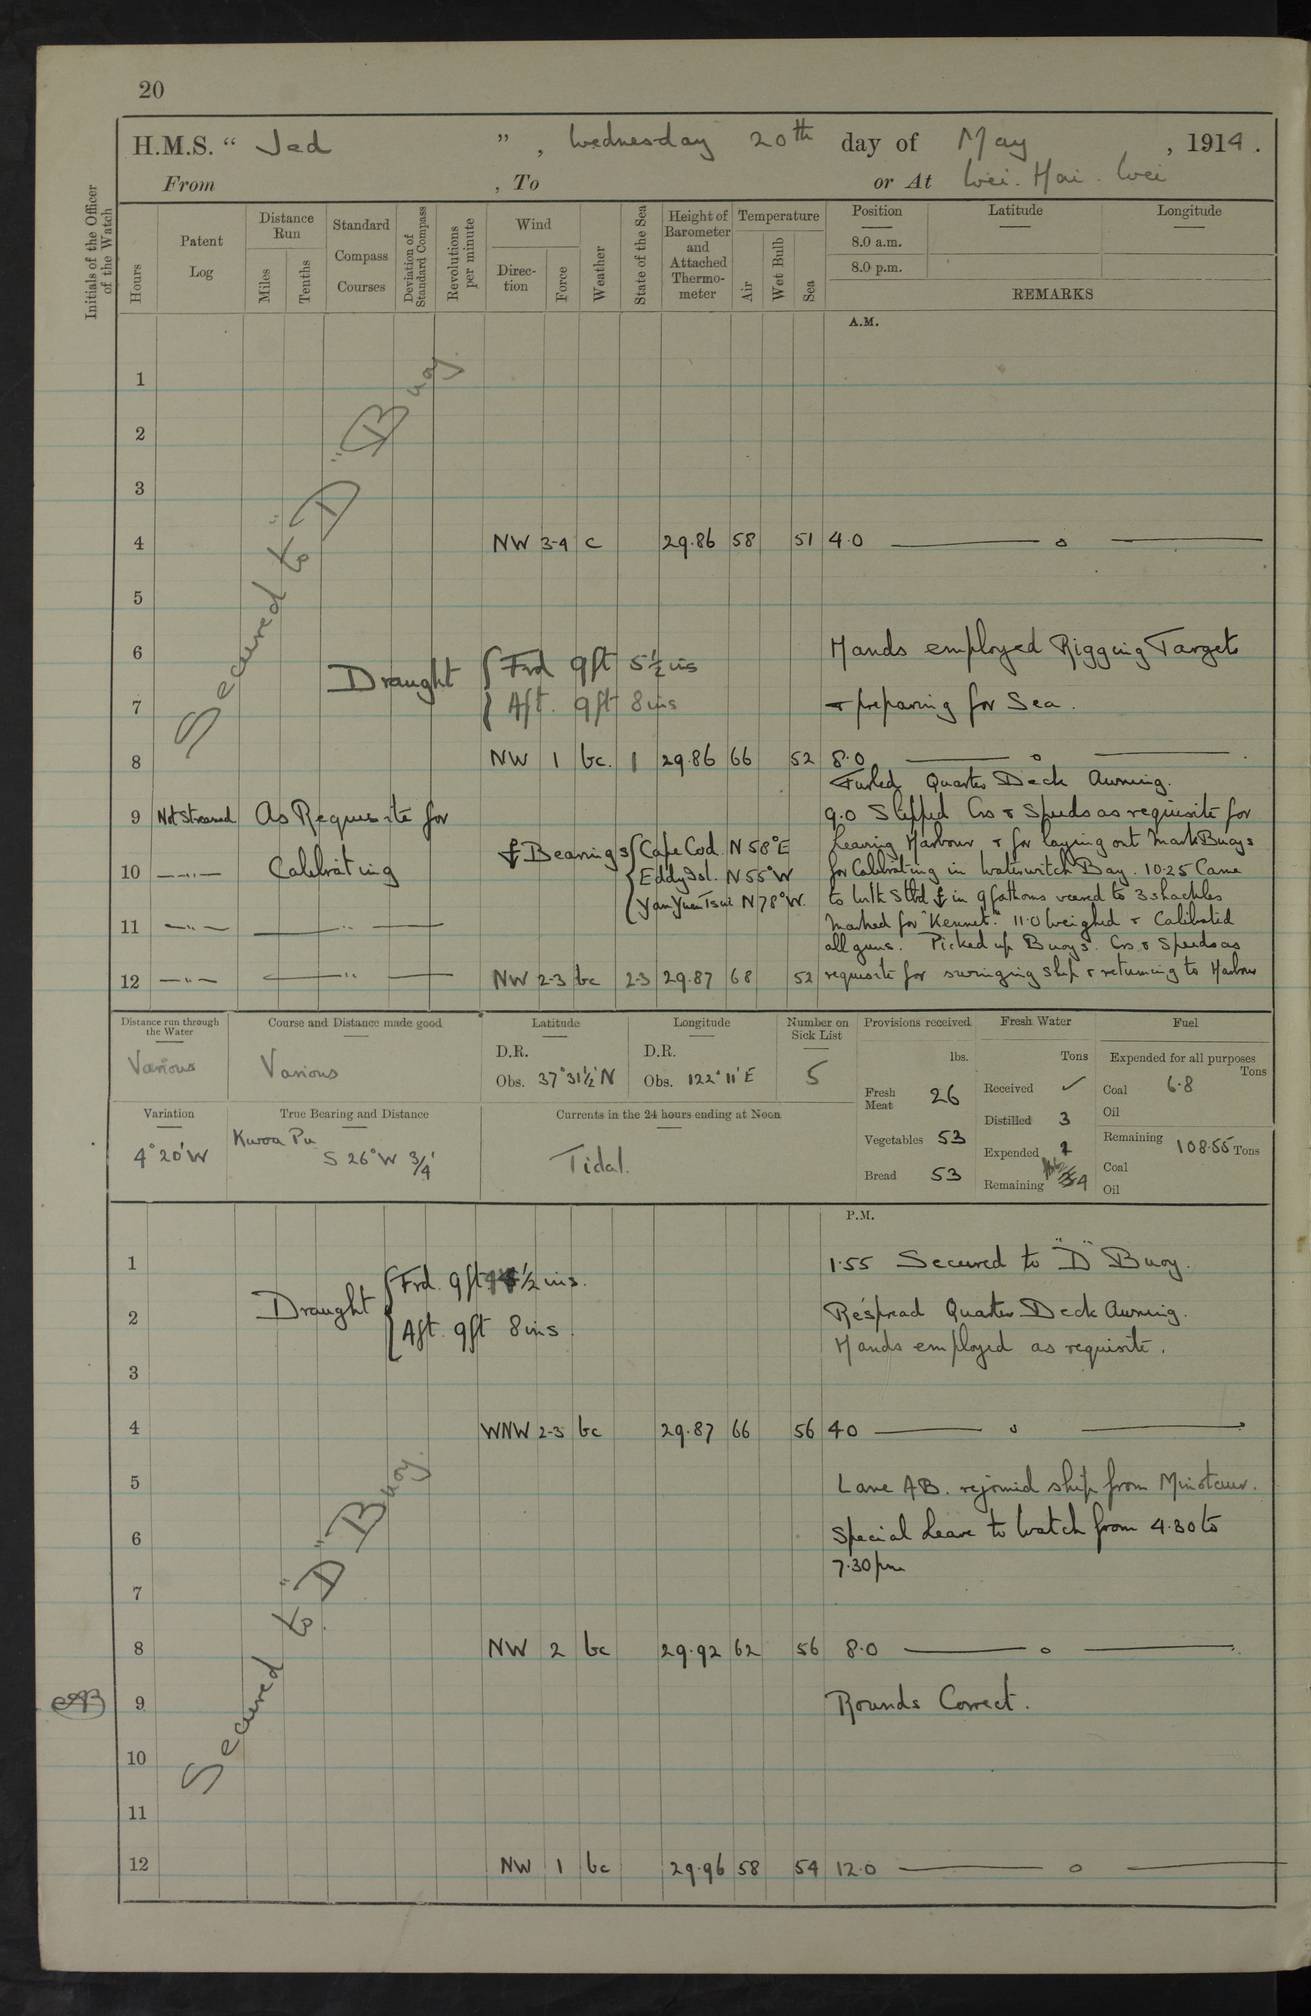 20
H.M.S. “ Jed ” , Wednesday 20th day of May , 1914 .
From , To or At Wei. Hai. Wei
Initials of the Officer of the Watch
Hours
Patent Log
Distance Run
Miles
Tenths
Standard Compass Courses
Deviation of Standard Compass
Revolutions per minute
Wind
Direc-tion
Force
Weather
State of the Sea
Height of Barometer and Attached Thermo-meter
Temperature
Air
Wet Bulb
Sea
Position
8.0 a.m.
8.0 p.m.
Latitude
Longitude
REMARKS
A.M.
Secured to "D" Buoy.
1
2
3
4 NW 3-4 c 29.86 58 51 4.0 —— o ——
5
6 Hands employed Rigging Targets
Draught { Frd 9ft 5½ ins
{ Aft. 9ft 8ins
7 + preparing for Sea.
8 NW 1 bc. 1 29.86 66 52 8.0 —— o ——
Furled Quarter Deck Awning.
9 Not Streamed As Requisite for 9.0 Slipped Cos + Speeds as requisite for
Bearings { Cape Cod. N 58°E leaving Harbour + for laying out Mark Buoys
10 —"— Calibrating { Eddy Isl. N 55°W for Calibrating in Waterwitch Bay. 10.25 Came
{ Yam Yuen Tsui N 78°W. to with Stbd in 9 fathoms veered to 3 shackles
11 —"— —— " —— Marked for "Kennet." 11.0 Weighed + Calibrated
all guns. Picked up Buoys. Cos. + Speeds as
12 —"— —— " —— NW 2-3 bc 2-3 29.87 68 52 requisite for swinging ship + returning to Harbour
Distance run through the Water
Various
Course and Distance made good
Various
Latitude
D.R.
Obs. 37°31½'N
Longitude
D.R.
Obs. 122°11'E
Number on Sick List
5
Provisions received
lbs.
Fresh Meat 26
Vegetables 53
Bread 53
Fresh Water
Tons
Received ✓
Distilled 3
Expended
Remaining
Fuel
Expended for all purposes
Tons
Coal 6.8
Oil
Remaining 108.55 Tons
Coal
Oil
Variation
4°20'W
True Bearing and Distance
Kwoa Pu
S 26°W ¾'
Currents in the 24 hours ending at Noon
Tidal.
P.M.
1 1.55 Secured to "D" Buoy.
Draught { Frd. 9ft ½ ins.
{ Aft. 9ft 8ins.
2 Respread Quarter Deck Awning.
Hands employed as requisite.
3
4 WNW 2-3 bc 29.87 66 56 4.0 —— o ——
Secured to "D" Buoy.
5 Lane AB. rejoined ship from Minotaur.
6 Special Leave to Watch from 4.30 to
7.30pm
7
8 NW 2 bc 29.92 62 56 8.0 —— o ——
9 Rounds Correct.
10
11
12 NW 1 bc 29.96 58 54 12.0 —— o ——